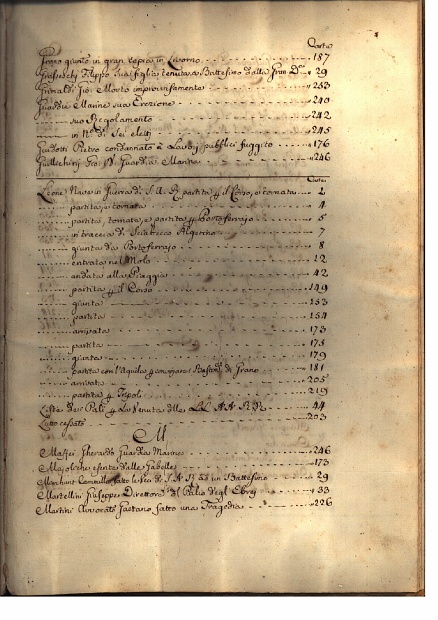 Carta
Grano giunto in gran copia in Livorno 187
Filippo sua figlia tenuta a Battesimo dalla Gran D. 29
Grimaldi Gio: Morto improvisamente 253
Guardie Marine sua Erezione 240
suo Regolamento 242
in N.º di Sei eletti 245
Guidotti Pietro condannato a Lavori pubblici fuggito 176
Gio: Guardia Marina 246
Carta
Leone Nave in Guerra di S. A. R. partita p il Corso, e tornata 2
partita, e tornata 4
partita, tornata, e partita p Portoferrajo 5
in traccia di Algerino 7
giunta da Portoferrajo 8
entrata nel Molo 12
andata alla Piaggia 42
partita p il Corso 149
giunta 153
partita 154
arrivata 173
partita 175
giunta 179
partita con l'Aquila p convojare di Grano 181
arrivata 205
partita p Tripoli 219
de Pali p La Venuta delle LL. AA. RR. 44
Lotto 203
M
Maffei Gherardo Guardia Marina 246
esente dalle Gabelle 173
fatto le veci di S. A. R. ad un Battesimo 29
Martellini Giuseppe Direttore del Palio degl Ebrei 33
Martini Avvocato Gaetano, fatto una Tragedia 226